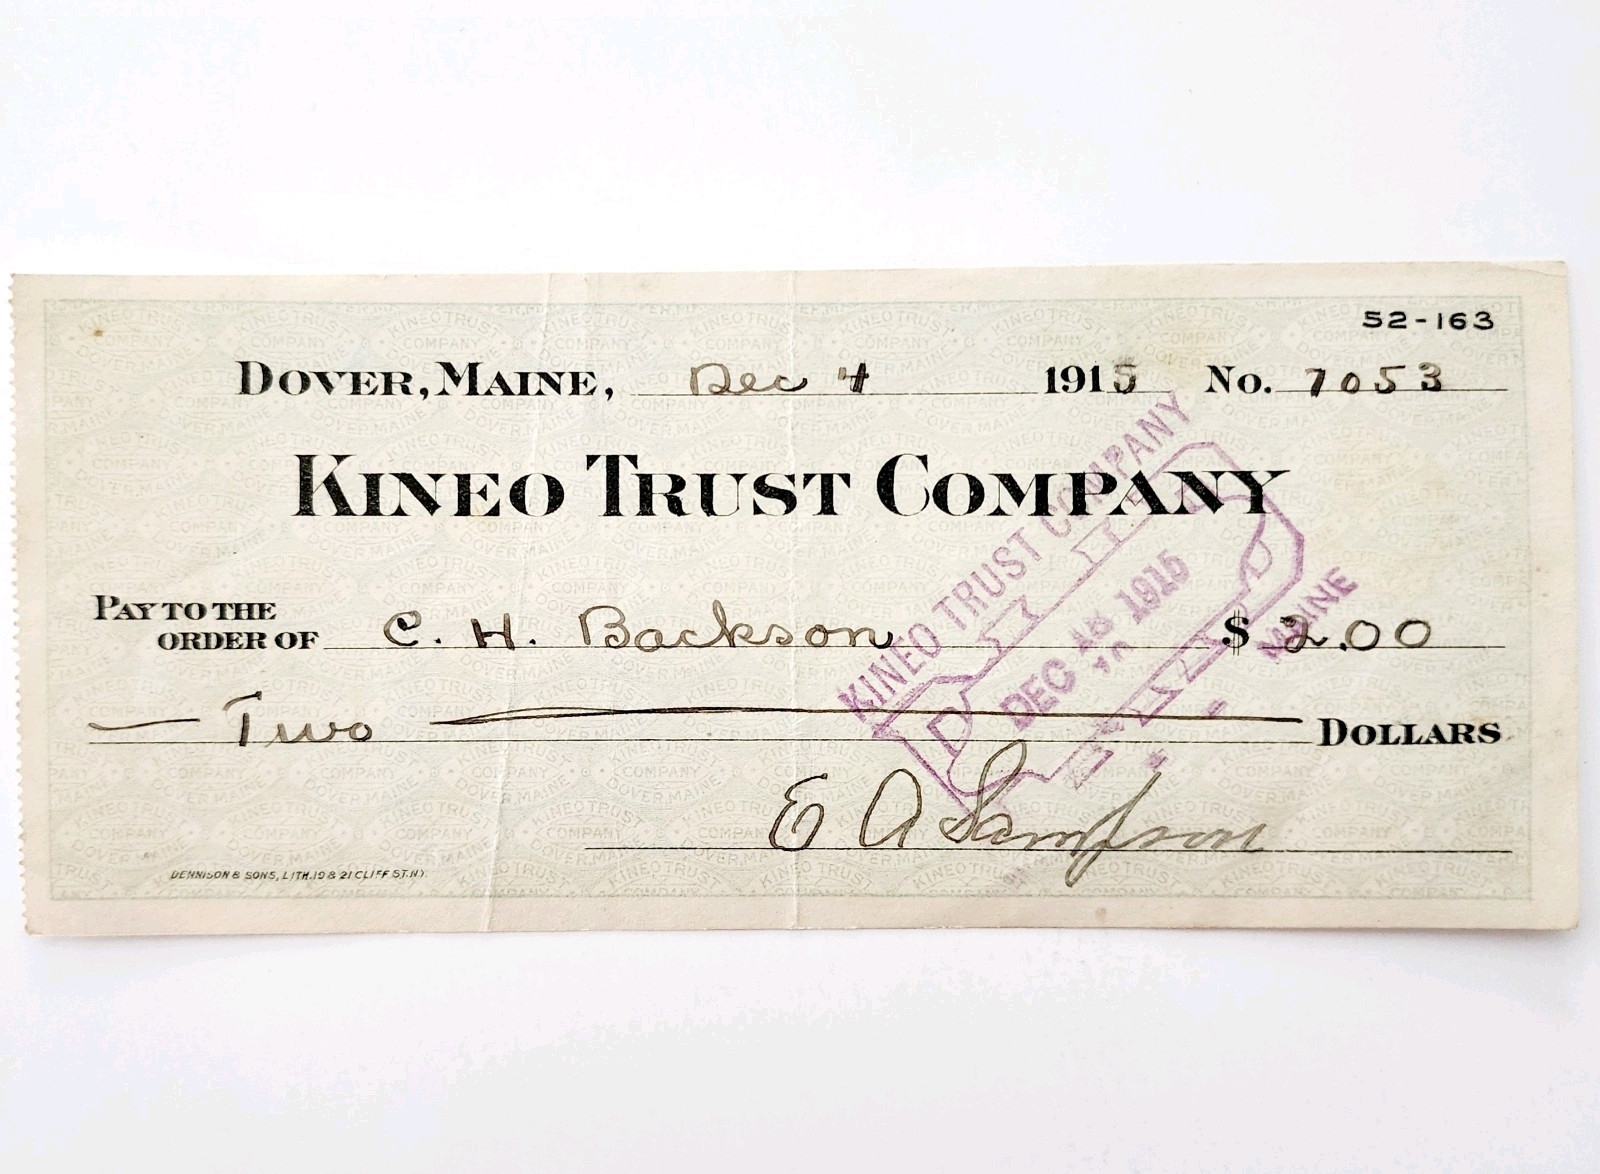 52-163
DOVER, MAINE, Dec 4 1915 No. 7053
KINEO TRUST COMPANY
PAY TO THE
ORDER OF C. H. Backson $2.00
Two DOLLARS
E A Sampson
DENNISON & SONS, LITH. 19 & 21 CLIFF ST. N.Y.
KINEO TRUST COMPANY
PAID
DEC 1915
MAINE